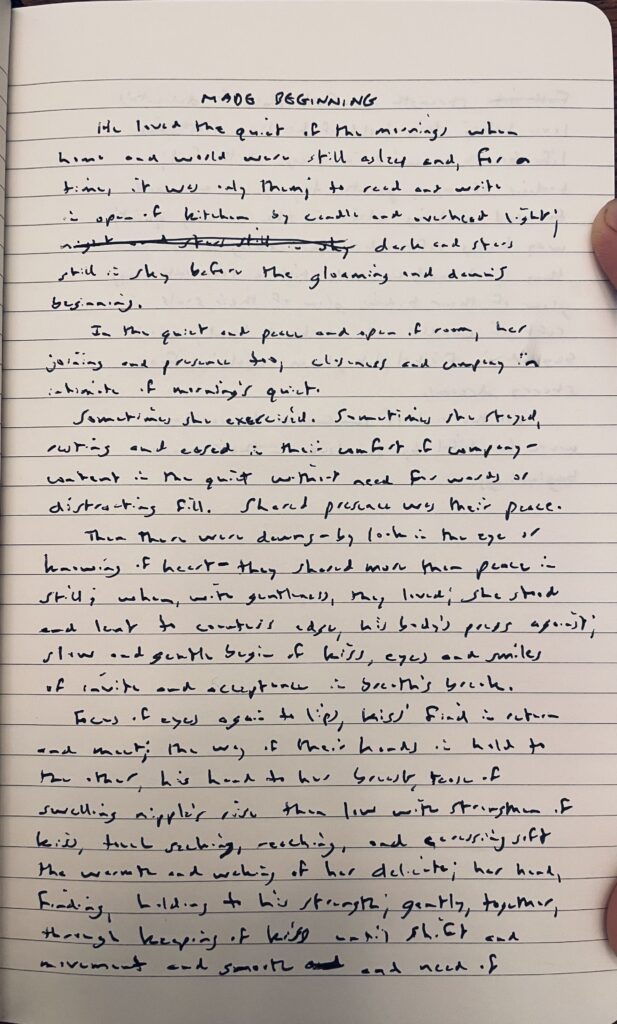 MADE BEGINNING
He loved the quiet of the mornings when
home and world were still asleep and, for a
time, it was only them; to read and write
in open of kitchen by candle and overhead light;
night and stars still in sky dark and stars
still in sky before the gloaming and dawn's
beginning.
In the quiet and peace and open of room, her
joining and presence too, closeness and company in
intimate of morning's quiet.
Sometimes she exercised. Sometimes she stayed,
resting and eased in their comfort of company-
content in the quiet without need for words or
distracting fill. Shared presence was their peace.
Then there were dawns-by look in the eye or
knowing of heart-they shared more than peace in
still; when, with gentleness, they loved; she stood
and leant to counter's edge, his body's press against;
slow and gentle begin of kiss, eyes and smiles
of invite and acceptance in breath's break.
Focus of eyes again to lips, kiss' find in return
and meet; the way of their hands in hold to
the other, his hand to her breast, tease of
swelling nipple's rise then low with strengthen of
kiss, touch seeking, reaching, and caressing soft
the warmth and waking of her delicate; her hand,
finding, holding to his strength; gently, together,
through keeping of kiss until shift and
movement and smooth and need of